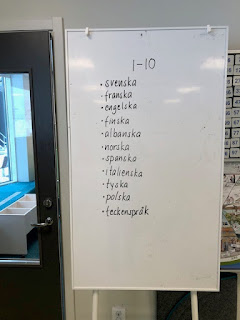 1-10
• svenska
• franska
• engelska
• finska
• albanska
• norska
• spanska
• italienska
• tyska
• polska
• teckenspråk